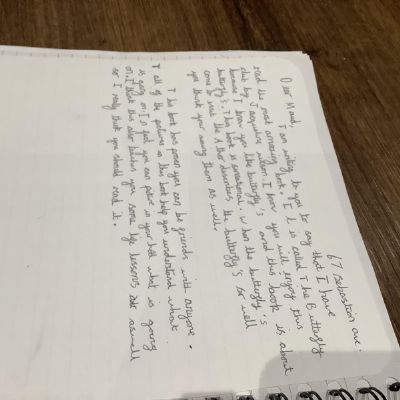 67 Sebastian ave.
Dear Maud, I am writing to you to say that I have
read the most amazing book. It is called The Butterfly
club by Jaqueline wilson. I know you will enjoy this
because I know you like butterfly's and this book is about
butterfly's. This book is sensational, when the butterfly's
come to visit the Athor describes the butterfly's so well
you think your among them as well.
This book has proven you can be friends with anyone.
all of the pictures in this book help you understand what
is going on. In fact you can picture in your what is going
on. I think this also teaches you some life lessons aswell
so I really think you should read it.